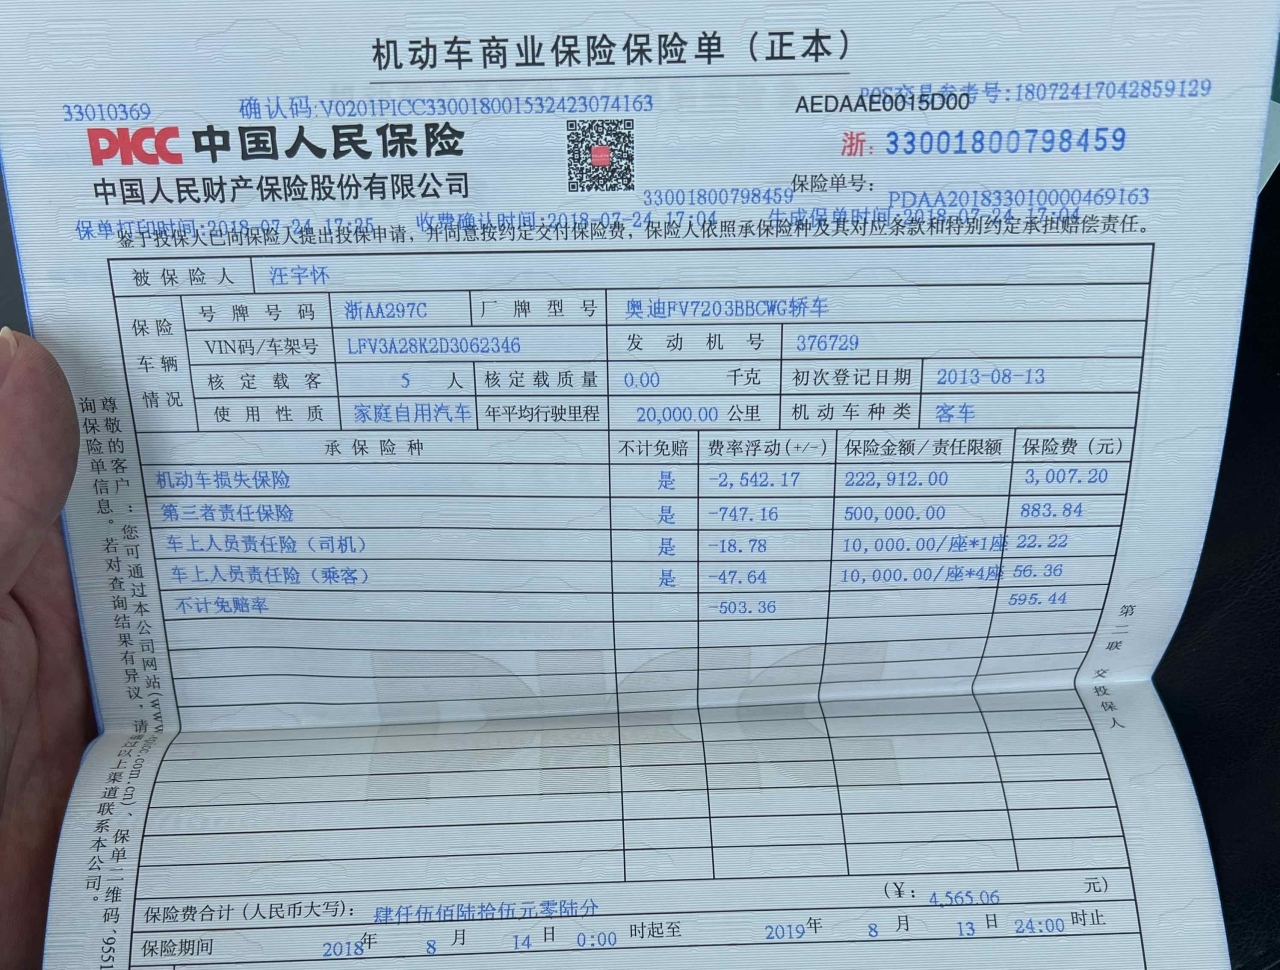 机动车商业保险保险单（正本）
33010369 确认码:V0201PICC330018001532423074163 AEDAAE0015D00 POS交易参考号:18072417042859129
PICC 中国人民保险 浙: 33001800798459
中国人民财产保险股份有限公司 33001800798459 保险单号: PDAA201833010000469163
保单打印时间:2018-07-24 17:25 收费确认时间:2018-07-24 17:04 生成保单时间:2018-07-24 17:04
鉴于投保人已向保险人提出投保申请，并同意按约定交付保险费，保险人依照承保险种及其对应条款和特别约定承担赔偿责任。
被保险人 汪宇怀
保险车辆情况
号牌号码 浙AA297C 厂牌型号 奥迪FV7203BBCWG轿车
VIN码/车架号 LFV3A28K2D3062346 发动机号 376729
核定载客 5 人 核定载质量 0.00 千克 初次登记日期 2013-08-13
使用性质 家庭自用汽车 年平均行驶里程 20,000.00 公里 机动车种类 客车
承保险种 不计免赔 费率浮动(+/-) 保险金额/责任限额 保险费（元）
机动车损失保险 是 -2,542.17 222,912.00 3,007.20
第三者责任保险 是 -747.16 500,000.00 883.84
车上人员责任险（司机） 是 -18.78 10,000.00/座*1座 22.22
车上人员责任险（乘客） 是 -47.64 10,000.00/座*4座 56.36
不计免赔率 -503.36 595.44
保险费合计（人民币大写）: 肆仟伍佰陆拾伍元零陆分 (¥: 4,565.06 元)
保险期间 2018年 8 月 14 日 0:00 时起至 2019年 8 月 13 日 24:00 时止
尊敬的客户：您可通过本公司网站(www.picc.com.cn)、保单二维码、9551
询保险单信息。若对查询结果有异议，请通过以上渠道联系本公司。
第二联 交投保人